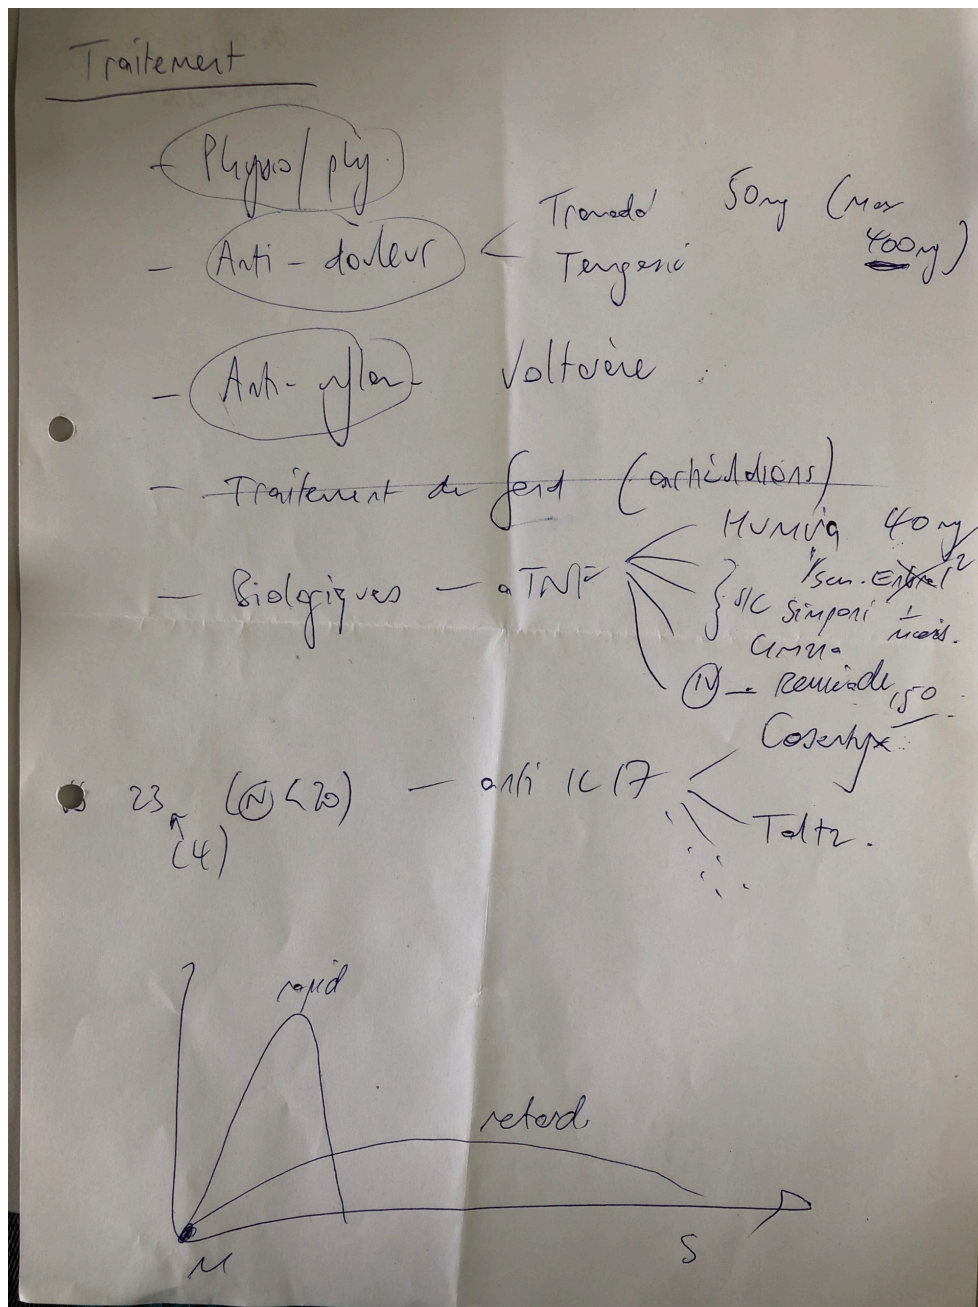 Traitement
- Physio/phy.
- Anti-douleur < Tramadol 50mg (Max 400mg)
Temgesic
- Anti-inflam- Voltarène
- Traitement de fond (
- Biologiques - aTNF
Humira 40mg
1/sem. Enbrel 2
S/C Simponi 1 mois.
Cimzia
IV - Remicade,
Cosentyx
23 (N<20) - anti IL17
(4)
Taltz.
rapid
retard
M
S